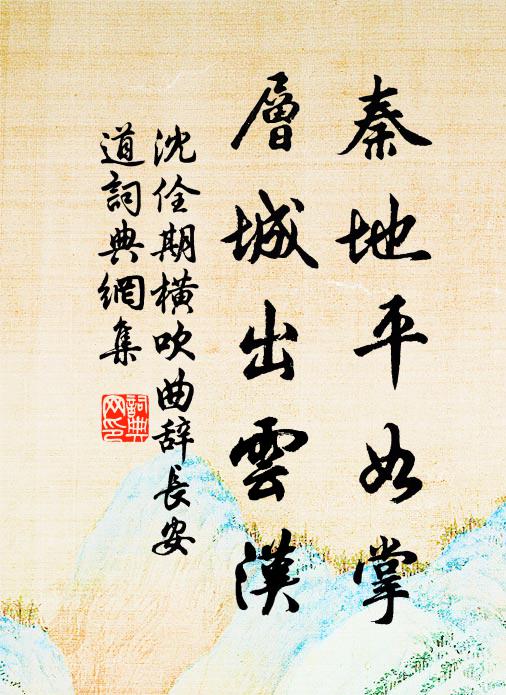 秦地平如掌
層城出雲漢
沈佺期橫吹曲辞長安
道詞典網集
詞典
网印